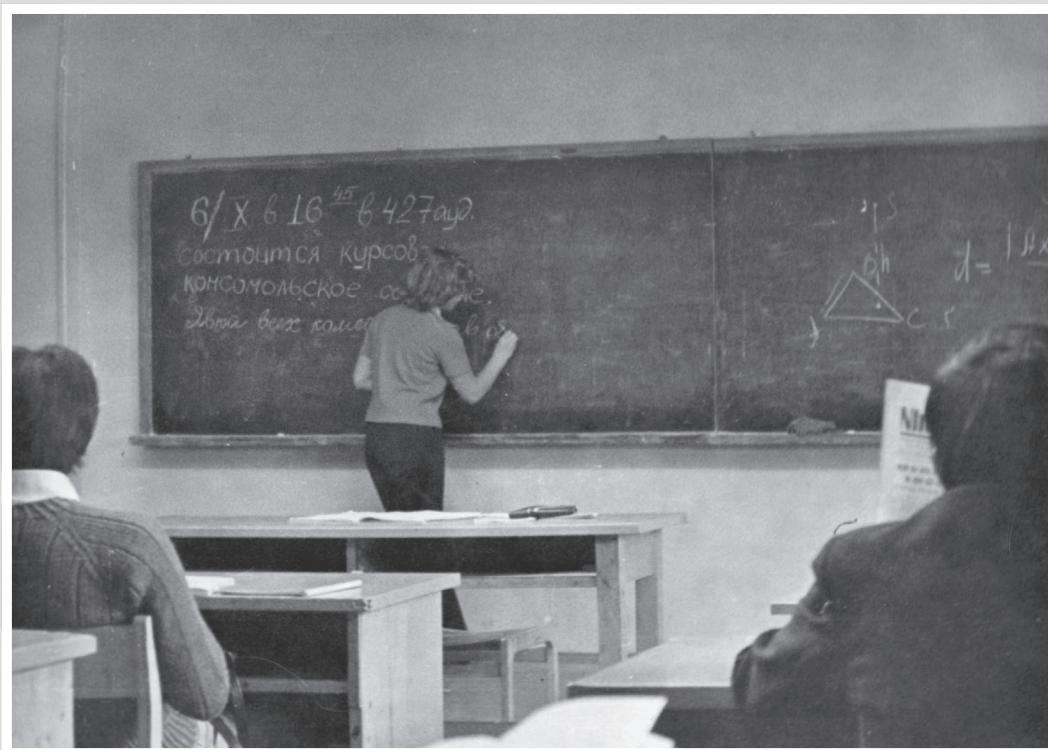 6/X в 16 45 в 427 ауд.
состоится курсов
комсомольское со е.
Явка всех комс в
S
B h
A C
d =